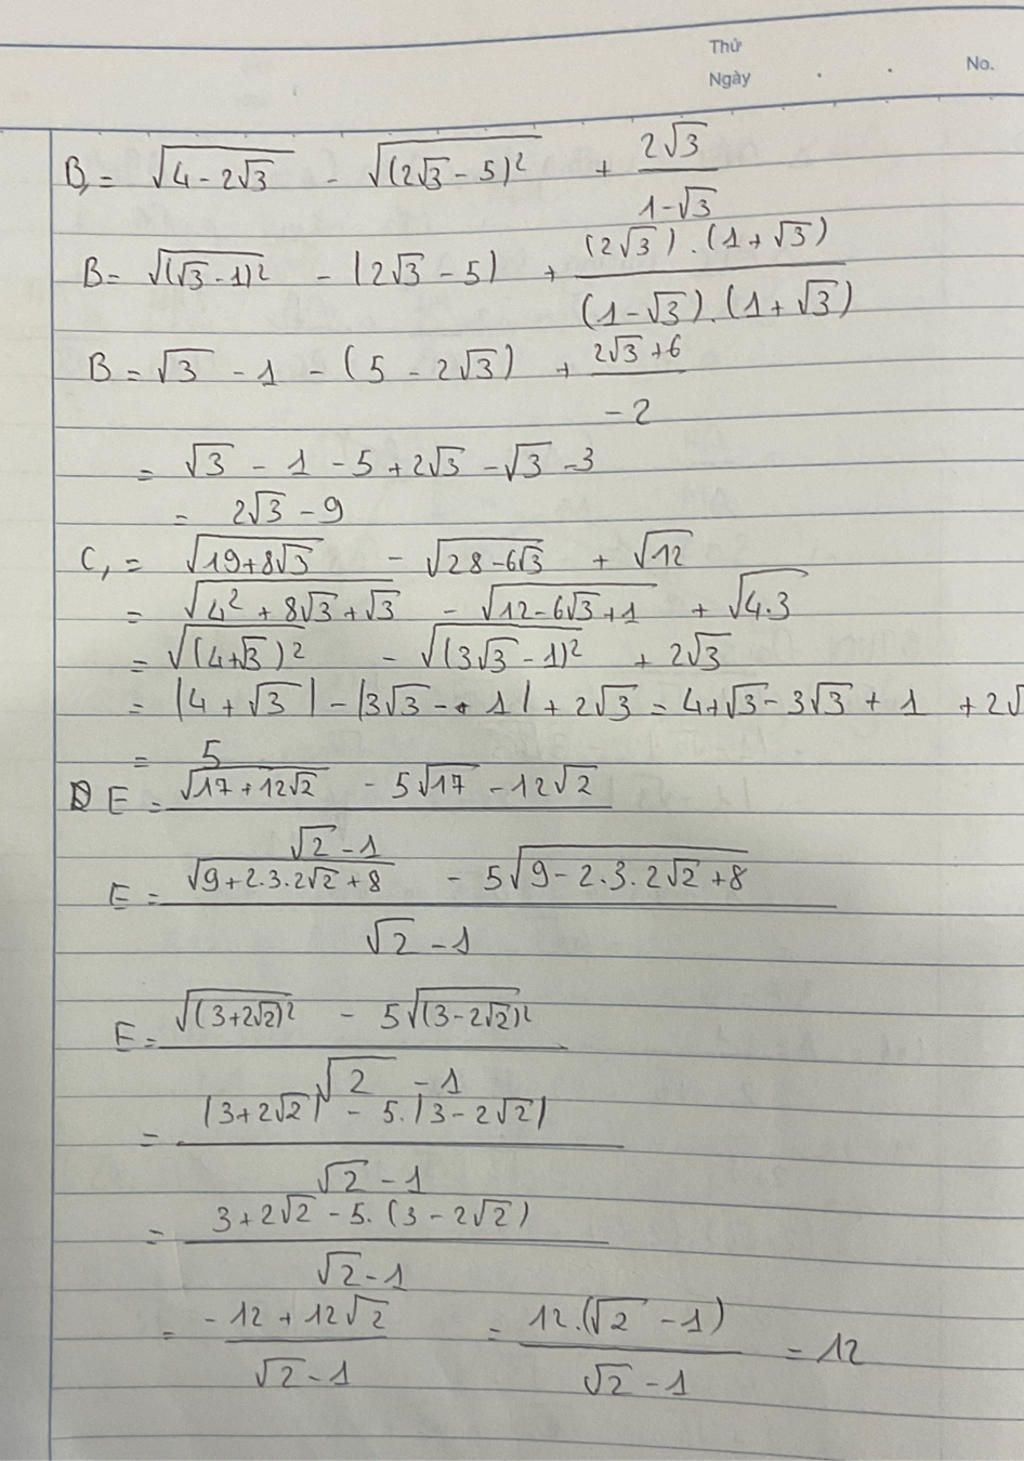 Thứ
Ngày . . No.
B, = √(4 - 2√3) - √((2√3 - 5)²) + (2√3)/(1-√3)
B = √((√3 - 1)²) - |2√3 - 5| + ((2√3).(1+√3))/((1-√3).(1+√3))
B = √3 - 1 - (5 - 2√3) + (2√3+6)/(-2)
= √3 - 1 - 5 + 2√3 - √3 - 3
= 2√3 - 9
C, = √(19+8√3) - √(28-6√3) + √12
= √(4² + 8√3 + √3) - √(12-6√3+1) + √(4.3)
= √((4+√3)²) - √((3√3 - 1)²) + 2√3
= |4 + √3| - |3√3 - 1| + 2√3 = 4+√3 - 3√3 + 1 + 2√
= 5
E = (√(17+12√2) - 5√17 - 12√2)/(√2 - 1)
E = (√(9+2.3.2√2+8) - 5√(9-2.3.2√2+8))/(√2 - 1)
E = (√((3+2√2)²) - 5√((3-2√2)²))/(√2 - 1)
= (|3+2√2| - 5.|3-2√2|)/(√2 - 1)
= (3+2√2 - 5.(3-2√2))/(√2-1)
= (-12+12√2)/(√2-1) = (12.(√2 - 1))/(√2-1) = 12